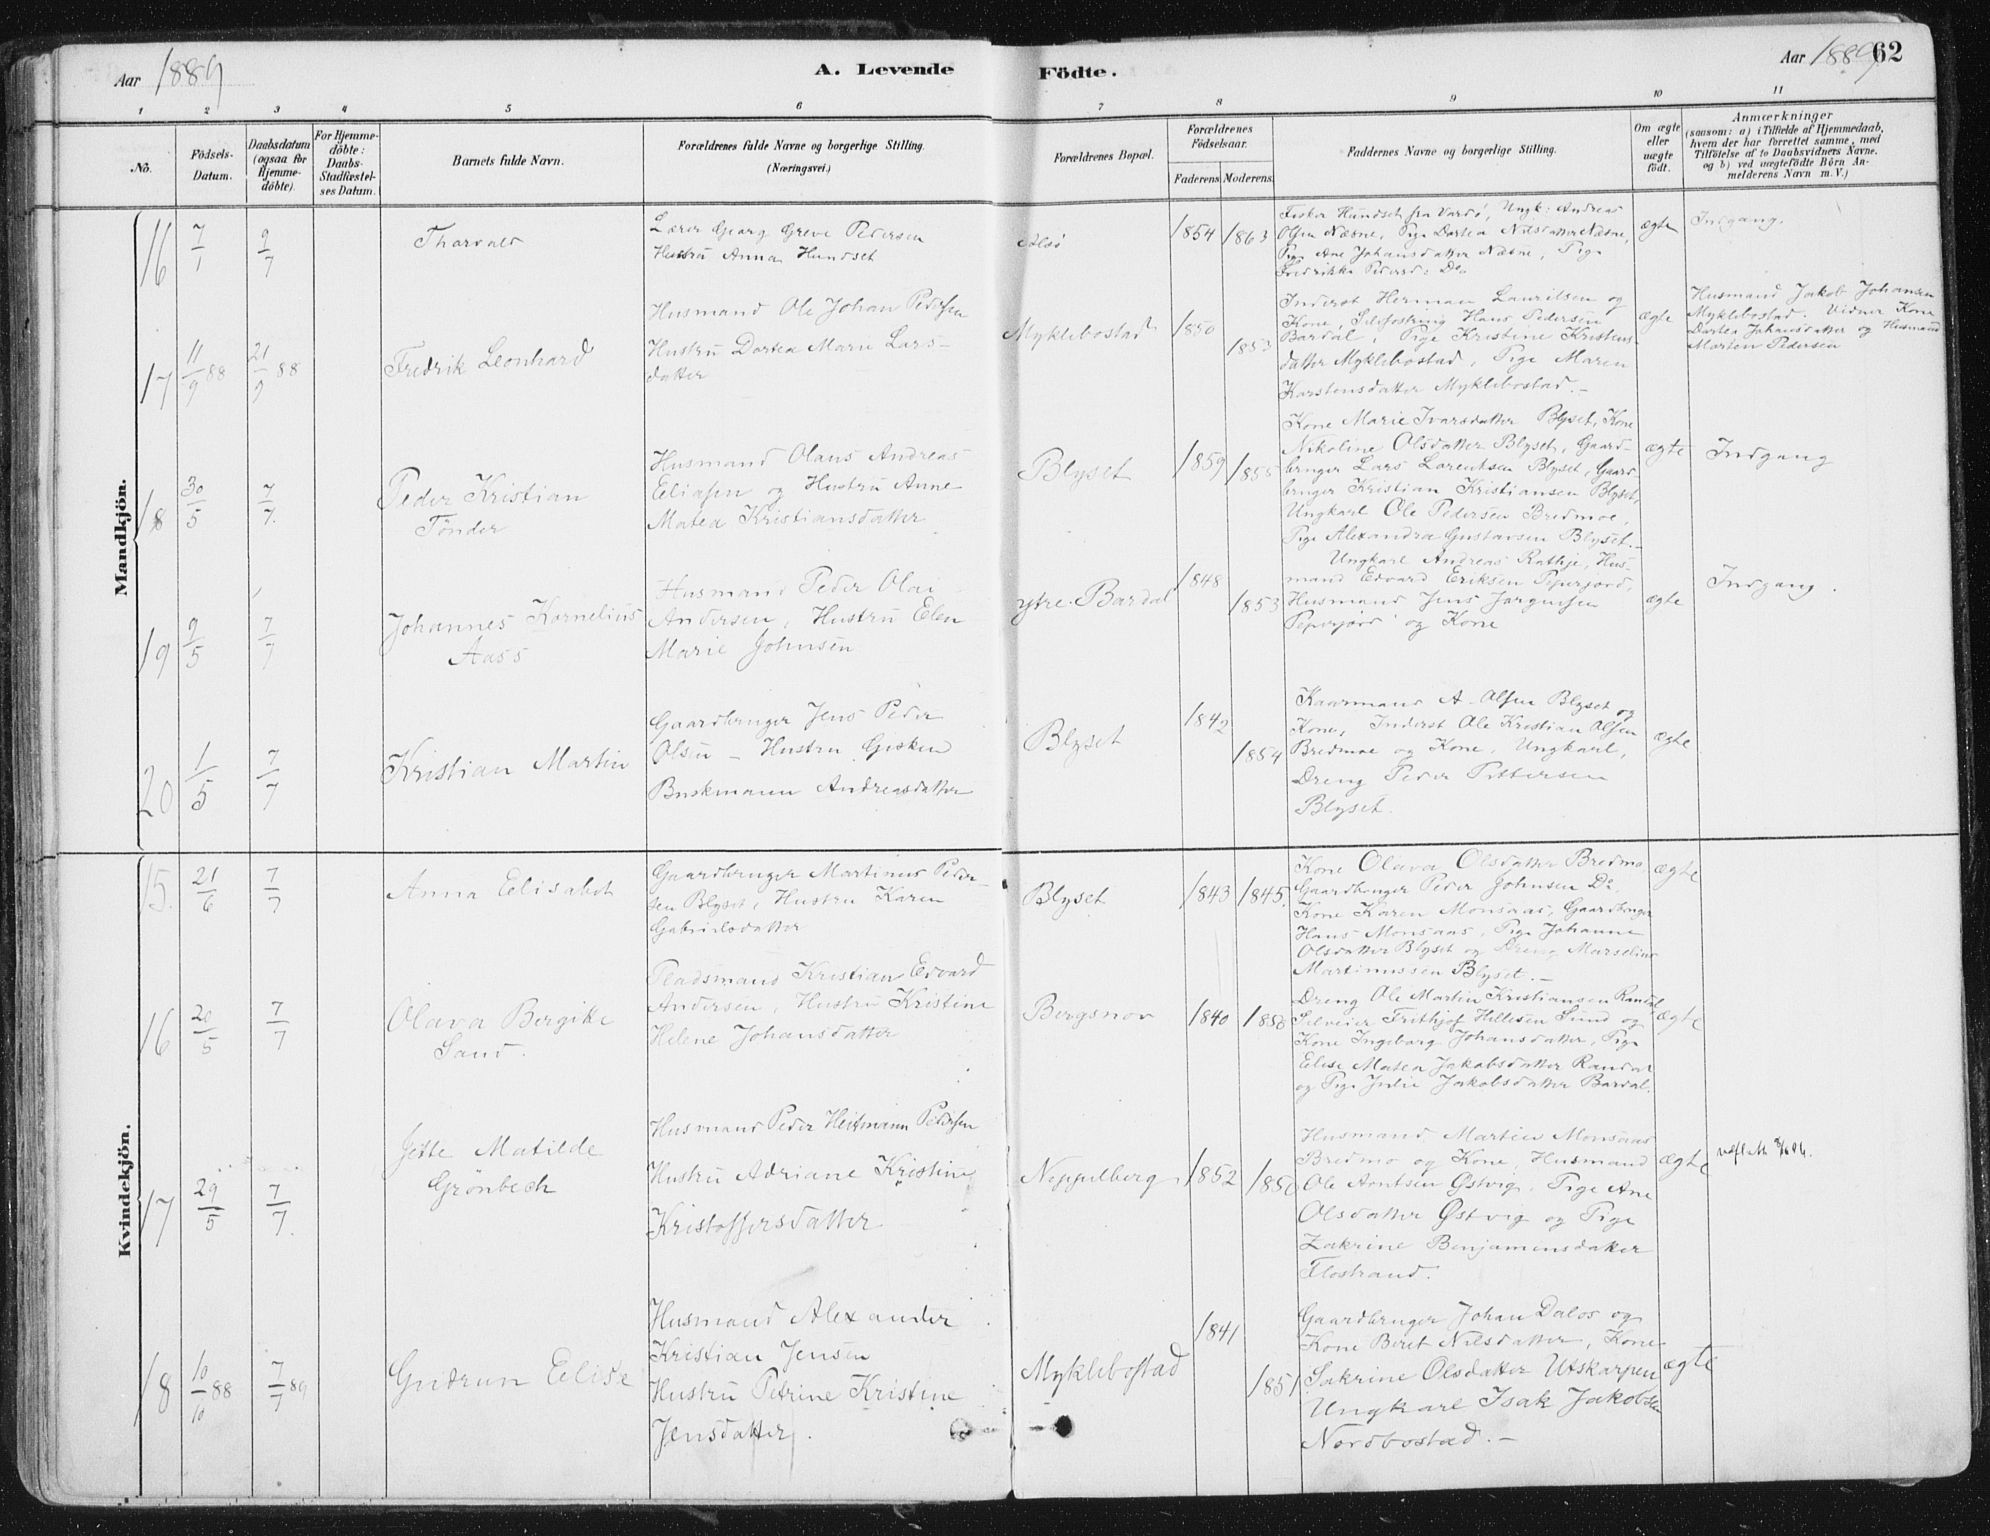 Aar 1889
A. Levende Födte.
Aar 1889 62
1 2 3 4 5 6 7 8 9 10 11
No.
Födsels-Datum.
Daabsdatum (ogsaa for Hjemme-döbte).
For Hjemme-döbte: Daabs-Stadfæstel-ses Datum.
Barnets fulde Navn.
Forældrenes fulde Navne og borgerlige Stilling. (Næringsvei.)
Forældrenes Bopæl.
Forældrenes Födselsaar.
Faderens. Moderens.
Faddernes Navne og borgerlige Stilling.
Om ægte eller uægte födt.
Anmærkninger
(saasom: a) i Tilfælde af Hjemmedaab, hvem der har forrettet samme, med Tilföielse af to Daabsvidners Navne. og b) ved uægtefödte Börn An-melderens Navn m. V.)
Mandkjön.
16 7/1 9/7
Thorvald
Lærer Georg Greve Pedersen
Hustru Anna Hundset
1854 1863
Fisker Hundset fra Vardö, Ungk: Andreas
Olsen Næsne, Pige Dortea Nilsdatter Næsne,
Pige Ane Johansdatter Næsne, Pige
Fredrikke Pedersd: Do
ægte
Indgang.
17 11/9 88 21/9 88
Fredrik Leonhard
Husmand Ole Johan Pedersen
Hustru Dortea Marie Lars-
datter
Myklebostad
1850 1853
Inderst Herman Lauritsen og
Kone, Hans Pedersen
Bardal, Pige Kristine Kristens-
datter Myklebostad, Pige Maren
Karstensdatter Myklebostad.-
ægte
Husmand Jakob Johansen
Myklebostad. Vidner Kone
Dortea Johansdatter og Husmand
Morten Pedersen
18 30/5 7/7.
Peder Kristian
Tönder
Husmand Olaus Andreas
Eliasen og Hustru Anne
Matea Kristiansdatter
Blyset
1859 1855
Kone Marie Ivarsdatter Blyset, Kone
Nikoline Olsdatter Blyset, Gaard-
bruger Lars Lorentsen Blyset, Gaard
bruger Kristian Kristiansen Blyset,
Ungkarl Ole Pedersen Bredmoe,
Pige Alexandra Gustavsen Blyset.-
ægte
Indgang
19 9/5 7/7
Johannes Kornelius
Aass
Husmand Peder Olai
Andersen, Hustru Elen
Marie Johnsen
ytre. Bardal
1848 1853
Ungkarl Andreas Rathje, Hus-
mand Edvard Eriksen
Husmand Jens Jørgensen
og Kone
ægte
Indgang.
20 1/5 7/7
Kristian Martin
Gaardbruger Jens Peder
Olsen - Hustru Gisken
Buskmann Andreasdatter
Blyset
1842 1854
Kaarmand A. Olsen Blyset og
Kone, Inderst Ole Kristian Olsen
Bredmoe og Kone, Ungkarl,
Dreng Peder Pettersen
Blyset.
ægte
Kvindekjön.
15. 21/6 7/7
Anna Elisabet
Gaardbruger Martinus Peder-
sen Blyset, Hustru Karen
Gabrielsdatter
Blyset
1843 1845.
Kone Olava Olsdatter Bredmo,
Gaardbruger Peder Johnsen Do.
Kone Karen Monsaas, Gaardbruger
Hans Monsaas, Pige Johanne
Olsdatter Blyset og Dreng Marselius
Martinussen Blyset.-
ægte
16 20/5 7/7
Olava Bergitte
Sand.
Pladsmand Kristian Edvard
Andersen, Hustru Kristine
Helene Johansdatter
Bergsnov
1840 1858
Dreng Ole Martin Kristiansen Randal
Selveier Frithjof Hillesen Sund og
Kone Ingeborg Johansdatter, Pige
Elise Matea Jakobsdatter Randal
og Pige Julie Jakobsdatter Bardal.
ægte
17 29/5 7/7.
Jette Matilde
Grönbech
Husmand Peder Heitmann Pedersen
Hustru Adriane Kristine
Kristoffersdatter
Neppelberg
1852 1850
Husmand Martin Monsaas
Bredmo og Kone, Husmand
Ole Arntsen Østvig, Pige Ane
Olsdatter Østvig og Pige
Zakrine Benjaminsdatter
Flostrand.
ægte
18 10/10 88 7/7 89
Gudrun Elise
Husmand Alexander
Kristian Jensen
Hustru Petrine Kristine
Jensdatter.
Myklebostad
1841 1851
Gaardbruger Johan Dalos og
Kone Beret Nilsdatter, Kone
Sakrine Olsdatter Utskarpen
Ungkarl Isak Jakobsen
Nordbostad.-
ægte